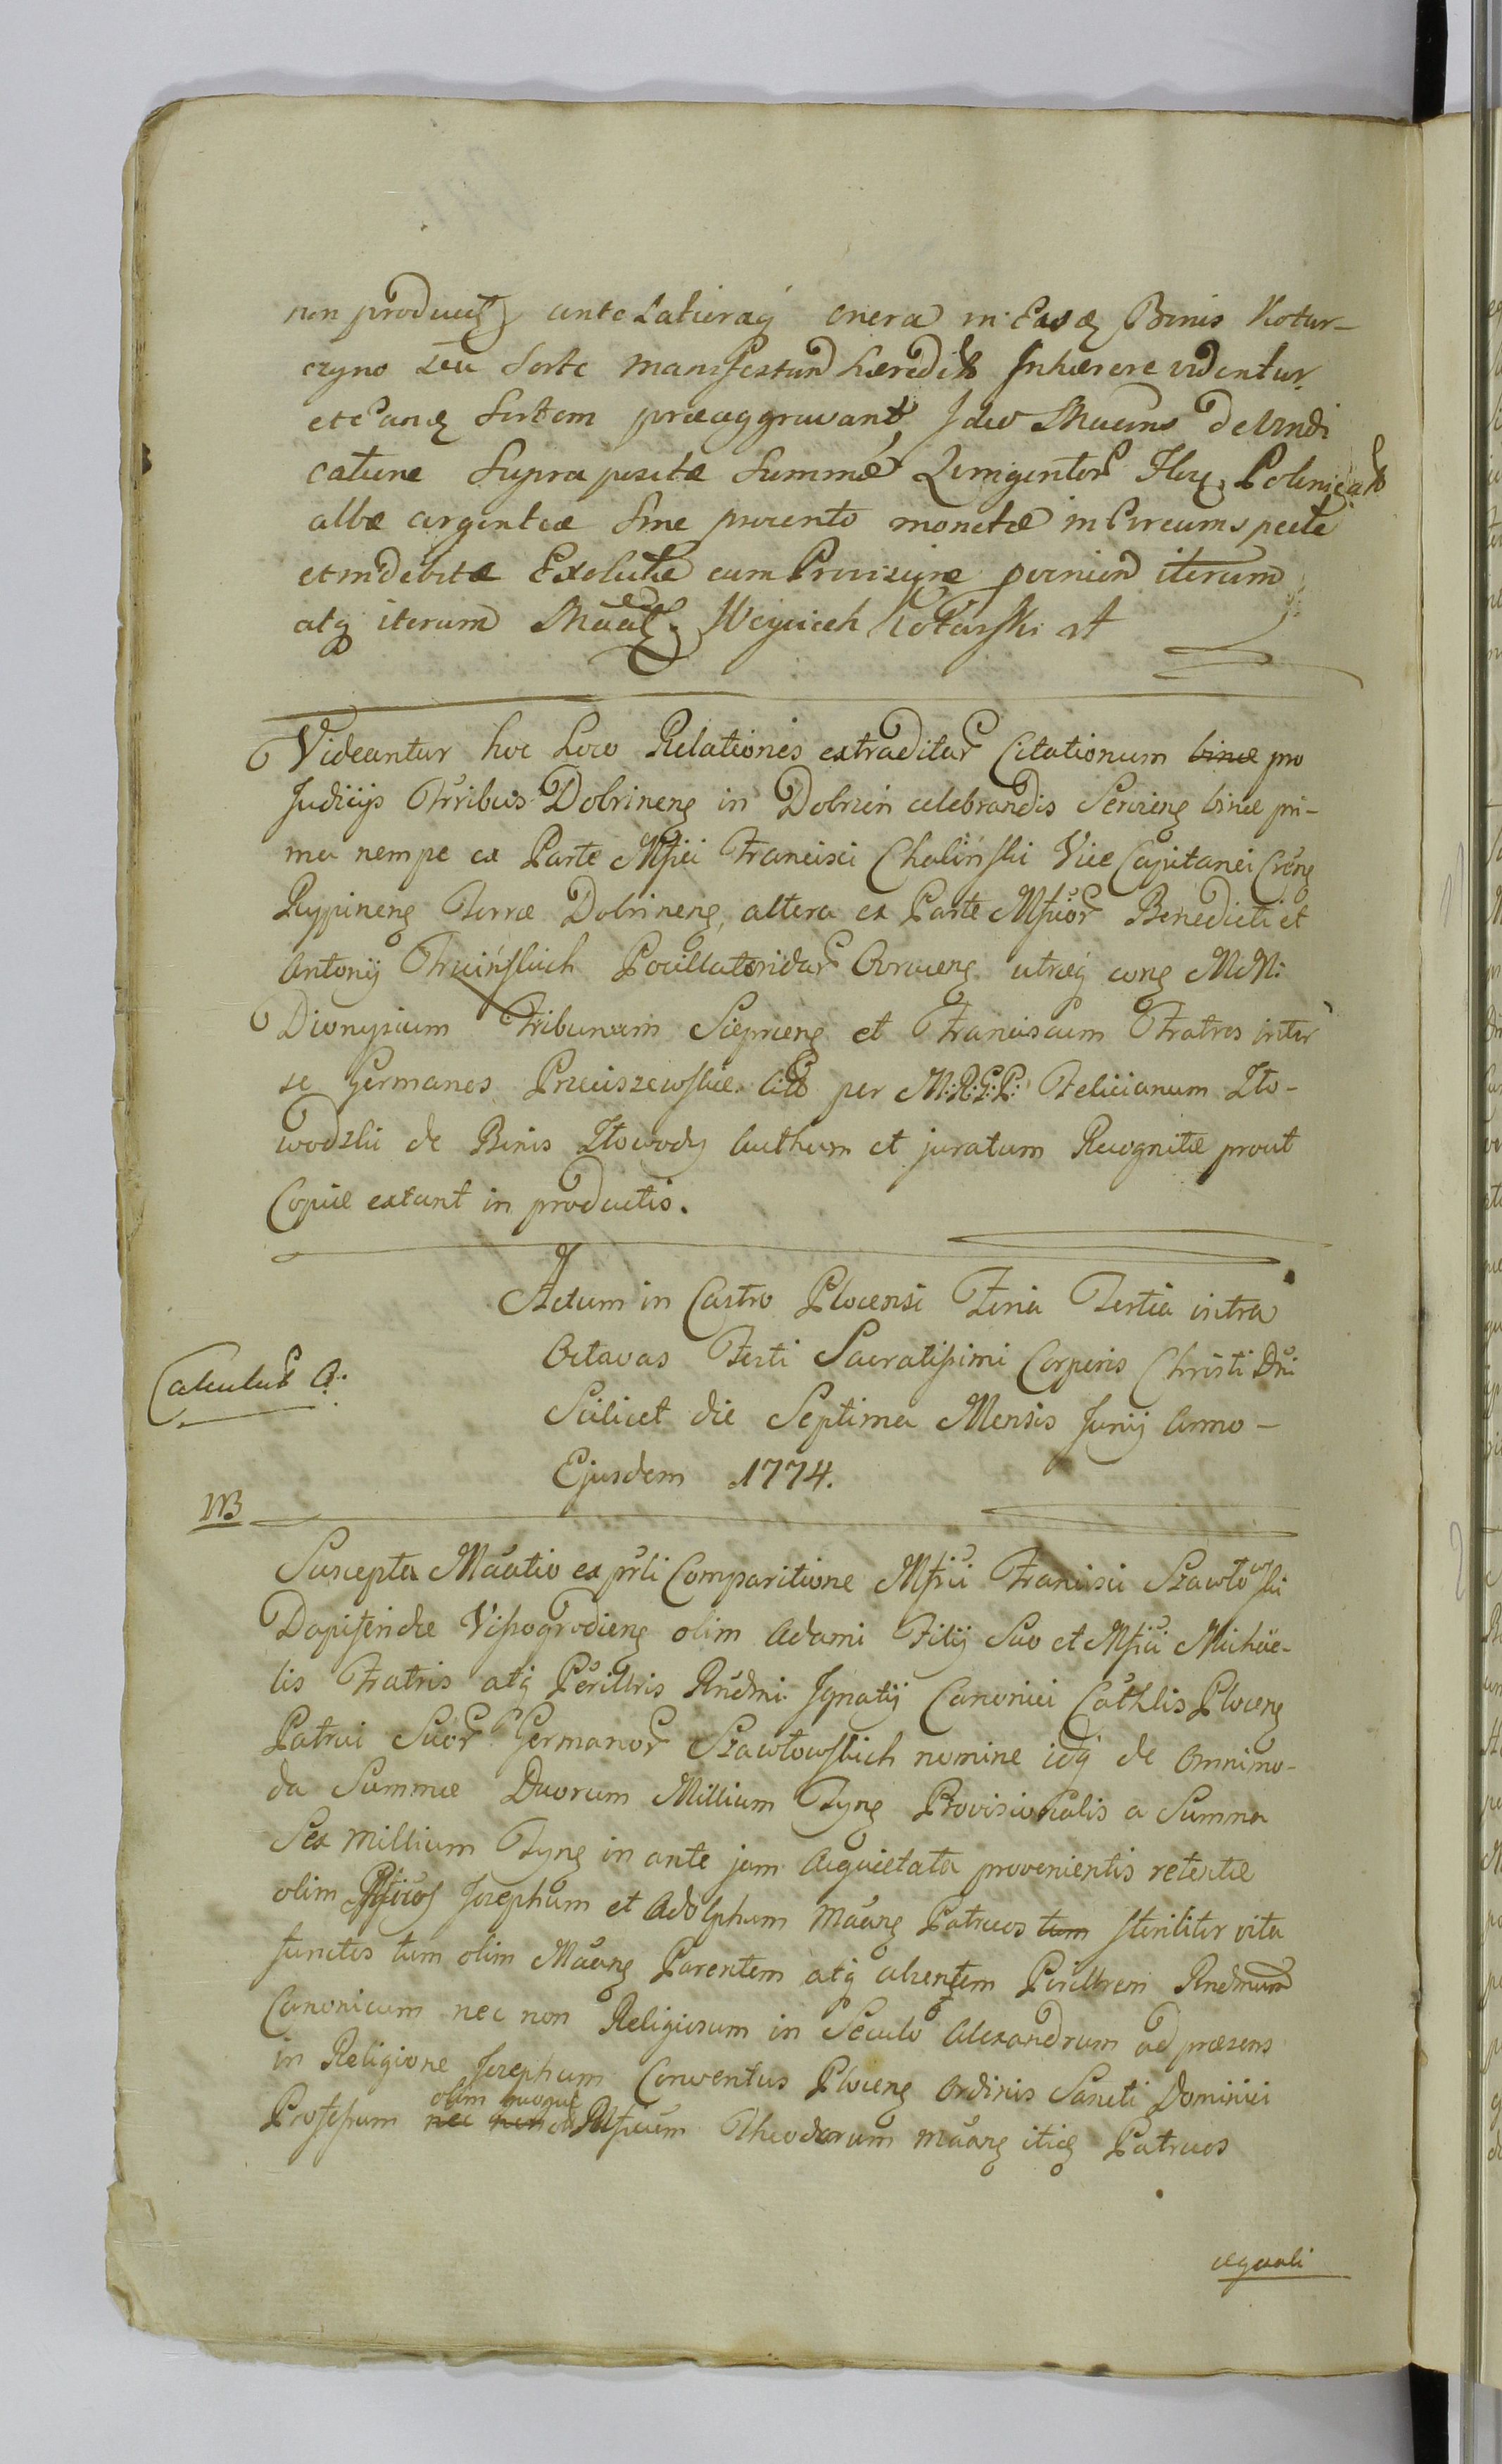 non producit ante Latieraq onera in Easq Binis Kotur-
czyno seu sorte manifestand hæredit Inhærere videntur
et eanq Sortem præaggravant, Ideo de Vindi
catione Supra positæ Summæ Quingentor Flor. Polonical
albæ argenteæ Sine procento monetæ in Circumspecte
et indebitæ Exolutæ cum Provisione iterum
atq iterum Woyciech
Videantur hoc Loco Relationes extraditar Citationum binæ pro
Judicijs Trribus Dobrinens in Dobrzen celebrandis Serviens binæ pri-
ma nempe ex Parte Mfici Francisci Chalinski Vice Capitanei Crens
Rypinens Terræ Dobrinens, altera ex Parte Mficor Benedicti et
Antonij Pocillatoridar utraq cons MM:
Dionysium Tribunum Sieprcens et Franciscum Fratres inter
se Germanos Przeciszewskie per M:R:G:R: Felicianum Zło-
wodzki de Binis Złowody Authum et juratum Recognitæ prout
Copiæ extant in productis.
Actum in Castro Plocensi Feria Tertia intra
Octavas Festi Sacratissimi Corporis Christi Dni
Scilicet die Septima Mensis Junij Anno -
Ejusdem 1774.
Calculat A:
NB
Suscepta Mãatio ex prli Comparitione Mfici Francisci Szawłowski
Dapiferidæ Vissogrodiens olim Adami Filij Suo et Mfici Michäe-
lis Fratris atq Perillris Rndmi Ignatij Canonici Cathlis Plocens
Patrui Suor Germanor Szawłowskich nomine idq de Omnimo-
da Summæ Duorum Millium Tyns Provisionalis a Summa
Sex millium Tyns in ante jam Aquietata provenientis retentæ
olim Mficos Josephum et Adolphum Mãang Patruos tum steriliter vita
functos tum olim Mãang Parentem atq absentem Perillrem Rndmum
Canonicum nec non Religiosum in Seculo Alexandrum ad præsens
in Religione Josephum Conventus Plocens Ordinis Sancti Dominici
olim quoque
Professum nec non Mficum Theodorum mãang itiq Patruos
æquali